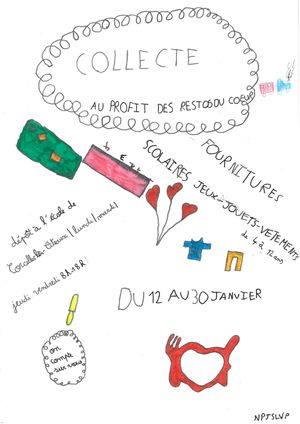 COLLECTE
AU PROFIT DES RESTOS DU COEUR
FOURNITURES
SCOLAIRES JEUX-JOUETS-VETEMENTS
de 4 à 12 ans
dépôt à l'école de
/lundi/mardi/
jeudi vendredi 8h 18h
DU 12 AU 30 JANVIER
on
compte
sur vous
NPJSLVP